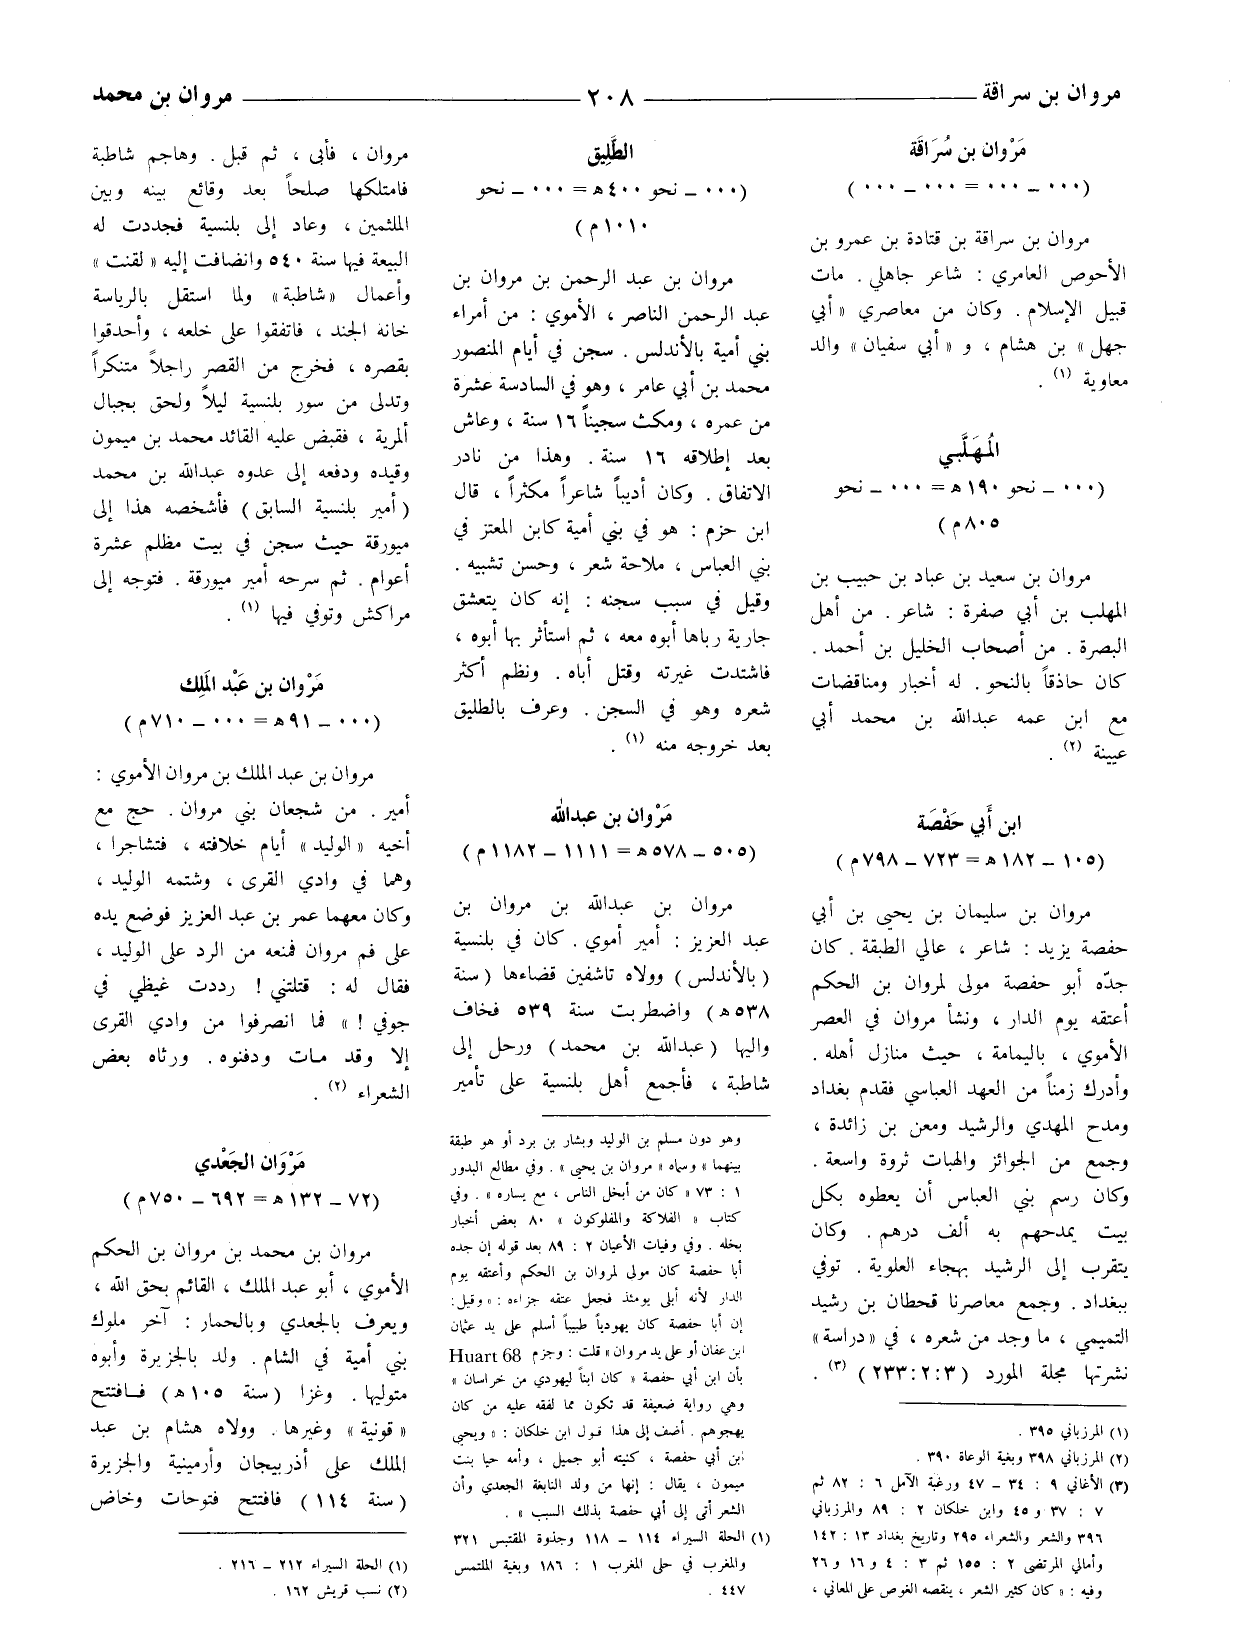 مروان بن سراقة
٢٠٨
مروان بن محمد
مَرْوان بن سُرَاقَة
(٠٠٠ ــ ٠٠٠ = ٠٠٠ ــ ٠٠٠)
مروان بن سراقة بن قتادة بن عمرو بن
الأحوص العامري : شاعر جاهلي . مات
قبيل الإسلام . وكان من معاصري «أبي
جهل» بن هشام ، و «أبي سفيان» والد
معاوية (١) .
المُهَلَّبي
(٠٠٠ ــ نحو ١٩٠ ه‍ = ٠٠٠ ــ نحو
٨٠٥ م)
مروان بن سعيد بن عباد بن حبيب بن
المهلب بن أبي صفرة : شاعر . من أهل
البصرة . من أصحاب الخليل بن أحمد .
كان حاذقاً بالنحو . له أخبار ومناقضات
مع ابن عمه عبدالله بن محمد أبي
عيينة (٢) .
ابن أَبي حَفْصَة
(١٠٥ ــ ١٨٢ ه‍ = ٧٢٣ ــ ٧٩٨ م)
مروان بن سليمان بن يحيى بن أبي
حفصة يزيد : شاعر ، عالي الطبقة . كان
جدّه أبو حفصة مولى لمروان بن الحكم
أعتقه يوم الدار ، ونشأ مروان في العصر
الأموي ، باليمامة ، حيث منازل أهله .
وأدرك زمناً من العهد العباسي فقدم بغداد
ومدح المهدي والرشيد ومعن بن زائدة ،
وجمع من الجوائز والهبات ثروة واسعة .
وكان رسم بني العباس أن يعطوه بكل
بيت يمدحهم به ألف درهم . وكان
يتقرب إلى الرشيد بهجاء العلوية . توفي
ببغداد . وجمع معاصرنا قحطان بن رشيد
التميمي ، ما وجد من شعره ، في «دراسة»
نشرتها مجلة المورد (٢٣٣:٢:٣) (٣) .
(١) المرزباني ٣٩٥ .
(٢) المرزباني ٣٩٨ وبغية الوعاة ٣٩٠ .
(٣) الأغاني ٩ : ٣٤ ــ ٤٧ ورغبة الآمل ٦ : ٨٢ ثم
٧ : ٣٧ و ٤٥ وابن خلكان ٢ : ٨٩ والمرزباني
٣٩٦ والشعر والشعراء ٢٩٥ وتاريخ بغداد ١٣ : ١٤٢
وأمالي المرتضى ٢ : ١٥٥ ثم ٣ : ٤ و ١٦ و ٢٦
وفيه : « كان كثير الشعر ، ينقصه الغوص على المعاني ،
الطَّلِيق
(٠٠٠ ــ نحو ٤٠٠ ه‍ = ٠٠٠ ــ نحو
١٠١٠ م)
مروان بن عبد الرحمن بن مروان بن
عبد الرحمن الناصر ، الأموي : من أمراء
بني أمية بالأندلس . سجن في أيام المنصور
محمد بن أبي عامر ، وهو في السادسة عشرة
من عمره ، ومكث سجيناً ١٦ سنة ، وعاش
بعد إطلاقه ١٦ سنة . وهذا من نادر
الاتفاق . وكان أديباً شاعراً مكثراً ، قال
ابن حزم : هو في بني أمية كابن المعتز في
بني العباس ، ملاحة شعر ، وحسن تشبيه .
وقيل في سبب سجنه : إنه كان يتعشق
جارية رباها أبوه معه ، ثم استأثر بها أبوه ،
فاشتدت غيرته وقتل أباه . ونظم أكثر
شعره وهو في السجن . وعرف بالطليق
بعد خروجه منه (١) .
مَرْوان بن عبدالله
(٥٠٥ ــ ٥٧٨ ه‍ = ١١١١ ــ ١١٨٢ م)
مروان بن عبدالله بن مروان بن
عبد العزيز : أمير أموي . كان في بلنسية
(بالأندلس) وولاه تاشفين قضاءها (سنة
٥٣٨ ه‍) واضطربت سنة ٥٣٩ فخاف
واليها (عبدالله بن محمد) ورحل إلى
شاطبة ، فأجمع أهل بلنسية على تأمير
وهو دون مسلم بن الوليد وبشار بن برد أو هو طبقة
بينهما » وسماه « مروان بن يحيى » . وفي مطالع البدور
١ : ٧٣ « كان من أبخل الناس ، مع يساره » . وفي
كتاب « الفلاكة والمفلوكون » ٨٠ بعض أخبار
بخله . وفي وفيات الأعيان ٢ : ٨٩ بعد قوله إن جده
أبا حفصة كان مولى لمروان بن الحكم وأعتقه يوم
الدار لأنه أبلى يومئذ فجعل عتقه جزاءه : « وقيل :
إن أبا حفصة كان يهودياً طبيباً أسلم على يد عثمان
ابن عفان أو على يد مروان » قلت : وجزم Huart 68
بأن ابن أبي حفصة « كان ابناً ليهودي من خراسان »
وهي رواية ضعيفة قد تكون مما لفقه عليه من كان
يهجوهم . أضف إلى هذا قول ابن خلكان : « ويحيى
ابن أبي حفصة ، كنيته أبو جميل ، وأمه حيا بنت
ميمون ، يقال : إنها من ولد النابغة الجعدي وأن
الشعر أتى إلى أبي حفصة بذلك السبب » .
(١) الحلة السيراء ١١٤ ــ ١١٨ وجذوة المقتبس ٣٢١
والمغرب في حلى المغرب ١ : ١٨٦ وبغية الملتمس
٤٤٧ .
مروان ، فأبى ، ثم قبل . وهاجم شاطبة
فامتلكها صلحاً بعد وقائع بينه وبين
الملثمين ، وعاد إلى بلنسية فجددت له
البيعة فيها سنة ٥٤٠ وانضافت إليه « لقنت »
وأعمال «شاطبة» ولما استقل بالرياسة
خانه الجند ، فاتفقوا على خلعه ، وأحدقوا
بقصره ، فخرج من القصر راجلاً متنكراً
وتدلى من سور بلنسية ليلاً ولحق بجبال
ألمرية ، فقبض عليه القائد محمد بن ميمون
وقيده ودفعه إلى عدوه عبدالله بن محمد
(أمير بلنسية السابق) فأشخصه هذا إلى
ميورقة حيث سجن في بيت مظلم عشرة
أعوام . ثم سرحه أمير ميورقة . فتوجه إلى
مراكش وتوفي فيها (١) .
مَرْوان بن عَبْد المَلِك
(٠٠٠ ــ ٩١ ه‍ = ٠٠٠ ــ ٧١٠ م)
مروان بن عبد الملك بن مروان الأموي :
أمير . من شجعان بني مروان . حج مع
أخيه «الوليد» أيام خلافته ، فتشاجرا ،
وهما في وادي القرى ، وشتمه الوليد ،
وكان معهما عمر بن عبد العزيز فوضع يده
على فم مروان فمنعه من الرد على الوليد ،
فقال له : قتلتني ! رددت غيظي في
جوفي ! » فما انصرفوا من وادي القرى
إلا وقد مات ودفنوه . ورثاه بعض
الشعراء (٢) .
مَرْوَان الجَعْدي
(٧٢ ــ ١٣٢ ه‍ = ٦٩٢ ــ ٧٥٠ م)
مروان بن محمد بن مروان بن الحكم
الأموي ، أبو عبد الملك ، القائم بحق الله ،
ويعرف بالجعدي وبالحمار : آخر ملوك
بني أمية في الشام . ولد بالجزيرة وأبوه
متوليها . وغزا (سنة ١٠٥ ه‍) فافتتح
« قونية » وغيرها . وولاه هشام بن عبد
الملك على أذربيجان وأرمينية والجزيرة
(سنة ١١٤) فافتتح فتوحات وخاض
(١) الحلة السيراء ٢١٢ ــ ٢١٦ .
(٢) نسب قريش ١٦٢ .